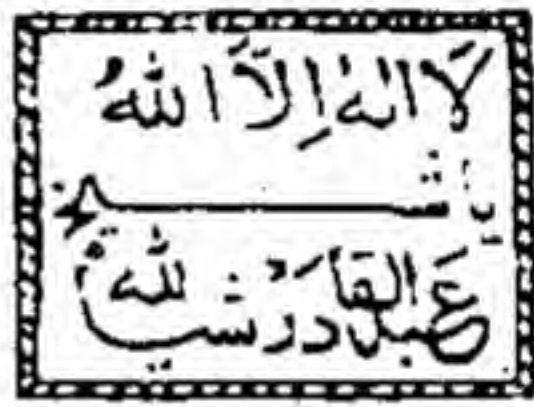 لَا اِلٰهَ اِلَّا اللهُ
يا شيخ
عبد القادر شيئا لله